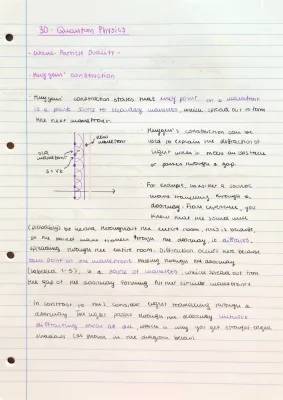 30 - Quantum Physics
- Wave Particle Duality -
- Huygens' construction
Huygens' construction states that every point on a wavefront
is a point source to secondary wavelets, which spread out to form
the next wavefront.
new
wavefront
old
wavefront
Huygen's construction can be
used to explain the diffraction of
light when it meets an obstacle
or passes through a gap.
For example, consider a sound
wave travelling through a
doorway. From experience, you
know that the sound will
be heard throughout the entire room, this is because,
as the sound wave travels through the doorway, it diffracts,
spreading through the entire room. Diffraction occurs here because
each point on the wavefront passing through the doorway
(labelled 1-5), is a source of wavelets, which spread out from
the gap of the doorway forming further circular wavefronts.
In contrast to this, consider light travelling through a
doorway. The light passes through the doorway without
diffracting much at all, which is why you get straight-edged
shadows (as shown in the diagram below).